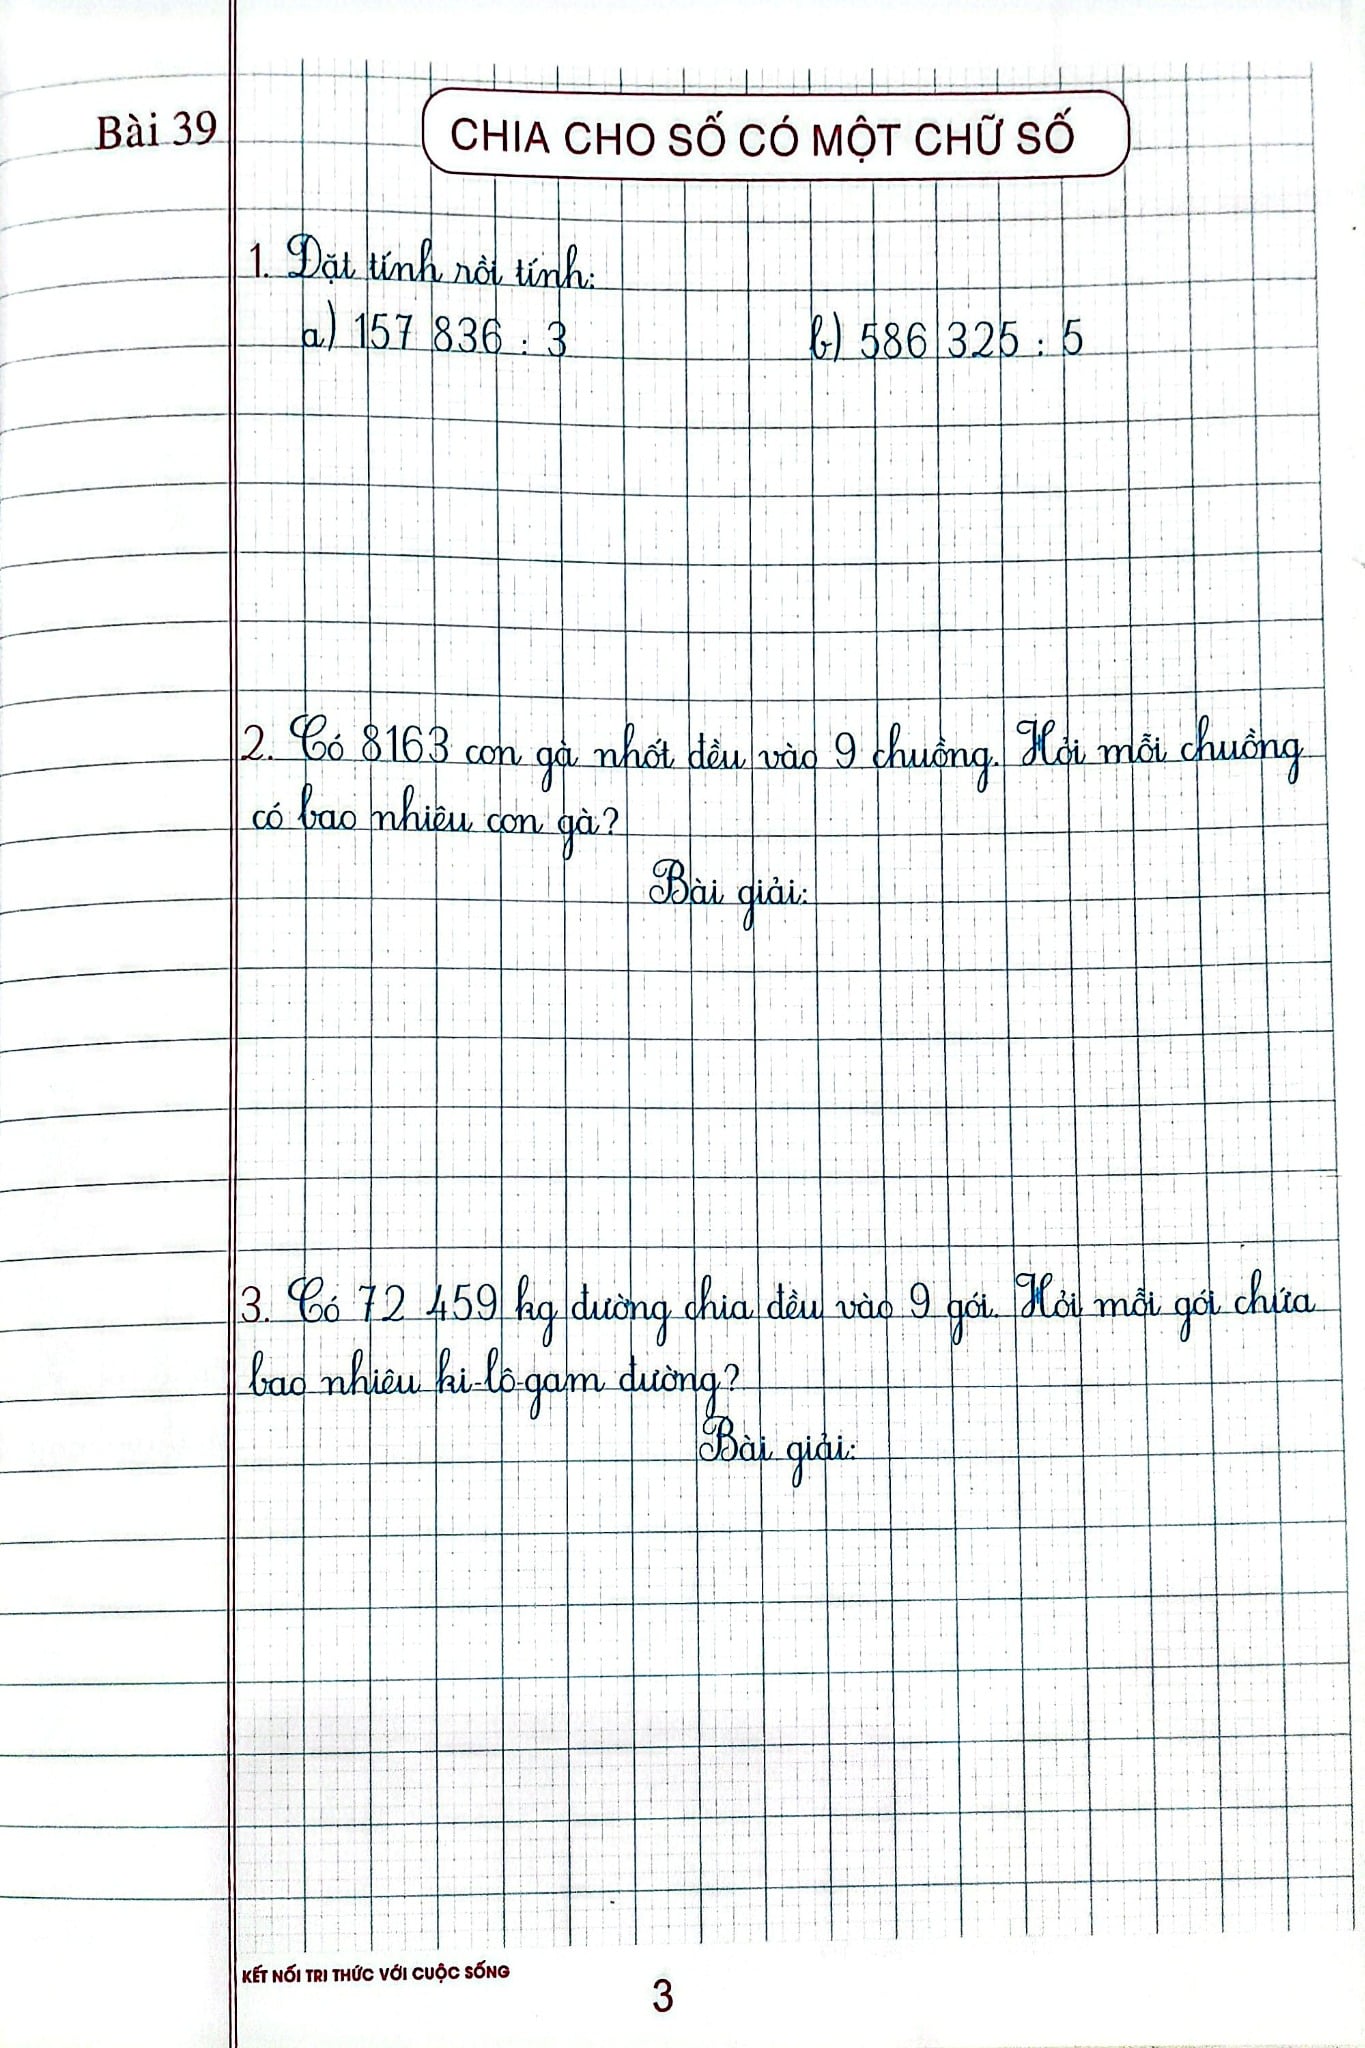 Bài 39
CHIA CHO SỐ CÓ MỘT CHỮ SỐ
1. Đặt tính rồi tính:
a) 157 836 : 3 b) 586 325 : 5
2. Có 8163 con gà nhốt đều vào 9 chuồng. Hỏi mỗi chuồng
có bao nhiêu con gà?
Bài giải:
3. Có 72 459 kg đường chia đều vào 9 gói. Hỏi mỗi gói chứa
bao nhiêu ki-lô-gam đường?
Bài giải:
KẾT NỐI TRI THỨC VỚI CUỘC SỐNG
3